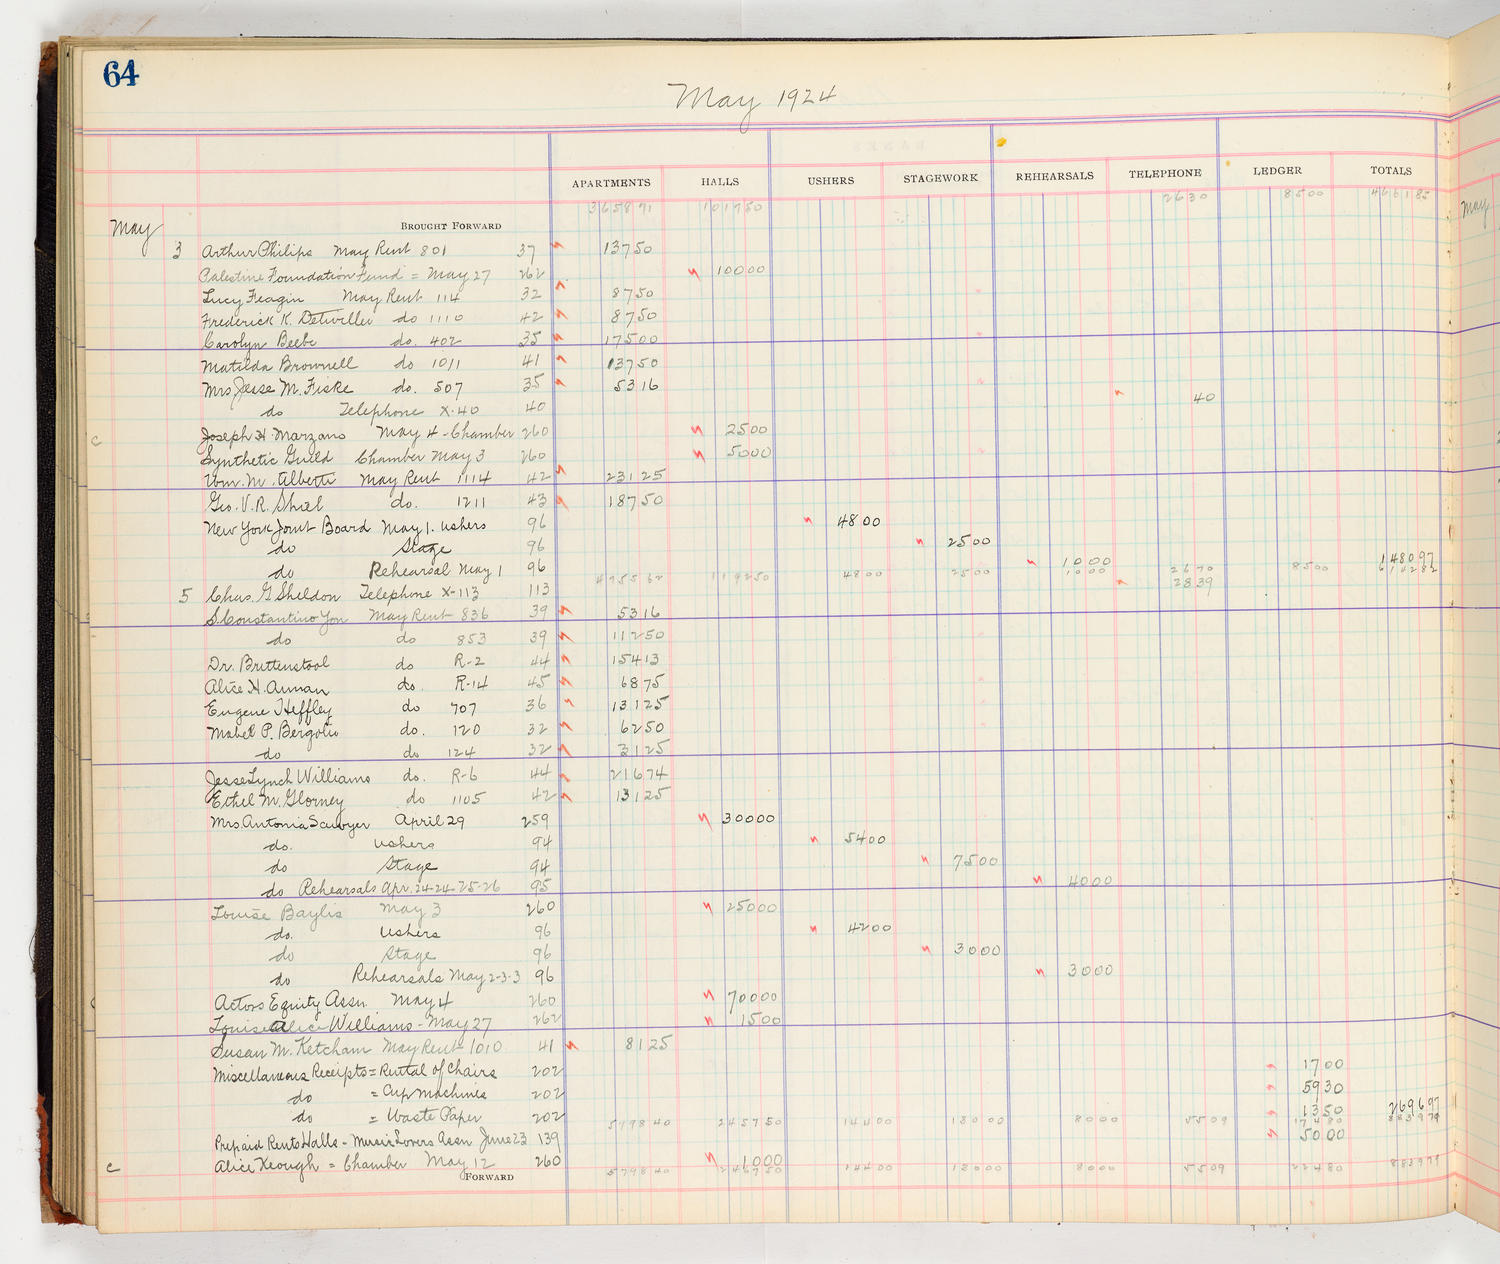 64
May 1924
APARTMENTS HALLS USHERS STAGEWORK REHEARSALS TELEPHONE LEDGER TOTALS
365871 101750 2630 8500 466185
May BROUGHT FORWARD
3 Arthur Philips May Rent 801 37 13750
Palestine Foundation Fund = May 27 262 10000
Lucy Feagin May Rent 114 32 8750
Frederick K. Detwiller do 1110 42 8750
Carolyn Beebe do. 402 35 17500
Matilda Brownell do 1011 41 13750
Mrs Jesse M. Fiske do. 507 35 5316
do Telephone X-40 40 40
c Joseph H. Marzano May 4 - Chamber 260 2500
Synthetic Guild Chamber May 3 260 5000
Wm. M. Alberti May Rent 1114 42 23125
Geo. V. R. Shiel do. 1211 43 18750
New York Joint Board May 1. ushers 96 4800
do Stage 96 2500
do Rehearsal May 1 96 1000 148097
475562 119250 4800 2500 1000 2670 8500 614282
5 Chas. G Sheldon Telephone X-113 113 2839
S. Constantino Yon May Rent 836 39 5316
do do 853 39 11250
Dr. Brittenstool do R-2 44 15413
Alice H. Annan do. R-14 45 6875
Eugene Heffley do 707 36 13125
Mabel P. Bergolio do. 120 32 6250
do do 124 32 3125
Jesse Lynch Williams do. R-6 44 21674
Ethel M. Glorney do 1105 42 13125
Mrs. Antonia Sawyer April 29 259 30000
do. ushers 94 5400
do Stage 94 7500
do Rehearsals Apr. 24-24-25-26 95 4000
Louise Baylis May 3 260 25000
do. Ushers 96 4200
do Stage 96 3000
do Rehearsals May 2-3-3 96 3000
Actors Equity Assn. May 4 260 70000
Louise Alice Williams - May 27 262 1500
Susan M. Ketcham May Rent 1010 41 8125
Miscellaneous Receipts = Rental of Chairs 202 1700
do = Cup machines 202 5930
do = Waste Paper 202 1350 269697
579840 245750 14400 13000 8000 5509 17480 883979
Prepaid Rents Halls - Music Lovers Assn June 23 139 5000
c Alice Keough = Chamber May 12 260 1000
FORWARD 579840 246750 14400 13000 8000 5509 22480
May